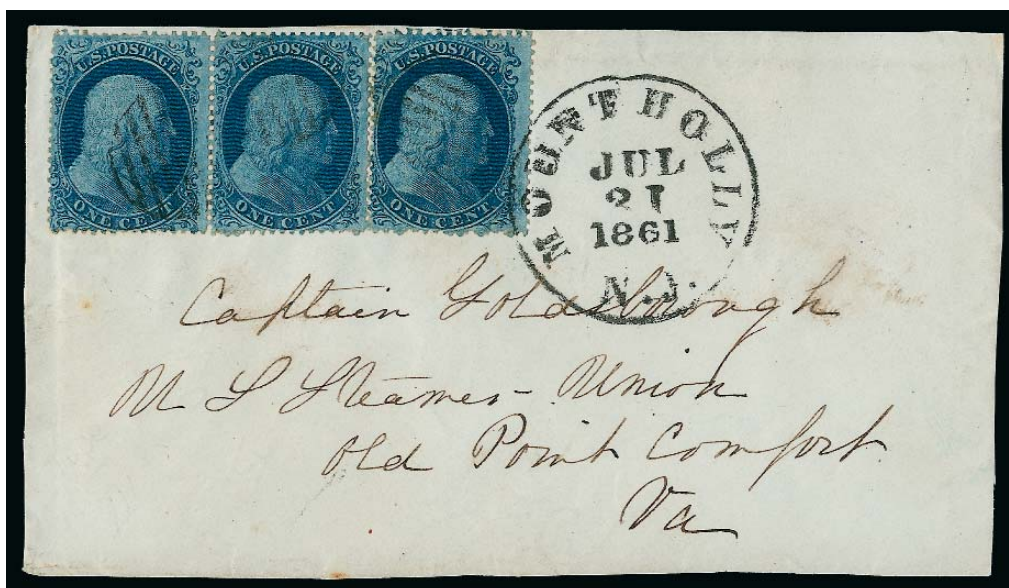 U.S. POSTAGE U.S. POSTAGE U.S. POSTAGE
ONE CENT ONE CENT ONE CENT
MOUNT HOLLY
JUL
21
1861
N.J.
Captain Goldsborough
U S Steamer Union
Old Point Comfort
Va